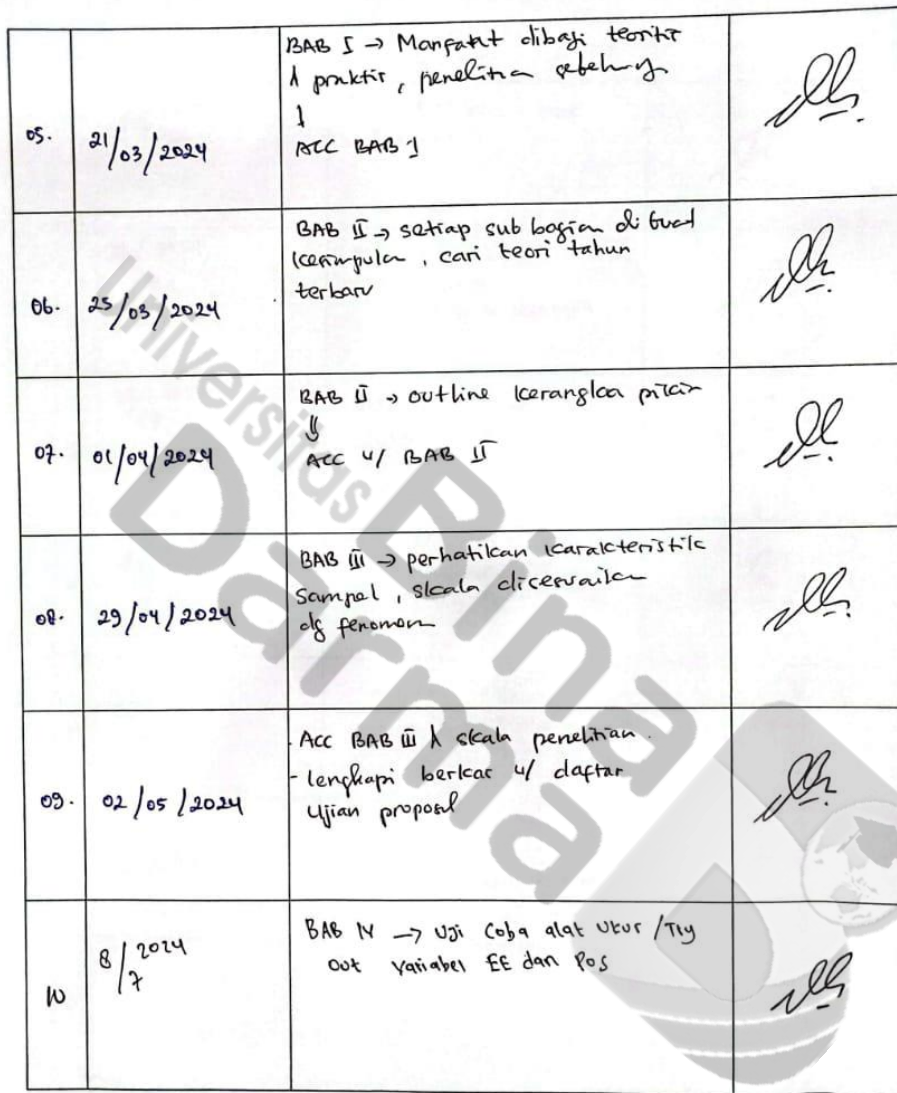 05.
21/03/2024
BAB I → Manfaat dibagi teoritis
& praktis, penelitian sebelumnya
↓
ACC BAB I
06.
25/03/2024
BAB II → setiap sub bagian di buat
kesimpulan, cari teori tahun
terbaru
07.
01/04/2024
BAB II → outline kerangka pikir
⇓
ACC u/ BAB II
08.
29/04/2024
BAB III → perhatikan karakteristik
sampel, skala disesuaikan
dg fenomena
09.
02/05/2024
- Acc BAB III & skala penelitian.
- lengkapi berkas u/ daftar
Ujian proposal
10
8/7 2024
BAB IV → Uji Coba alat Ukur / Try
Out Variabel EE dan Pos
Universitas
Bina
Darma